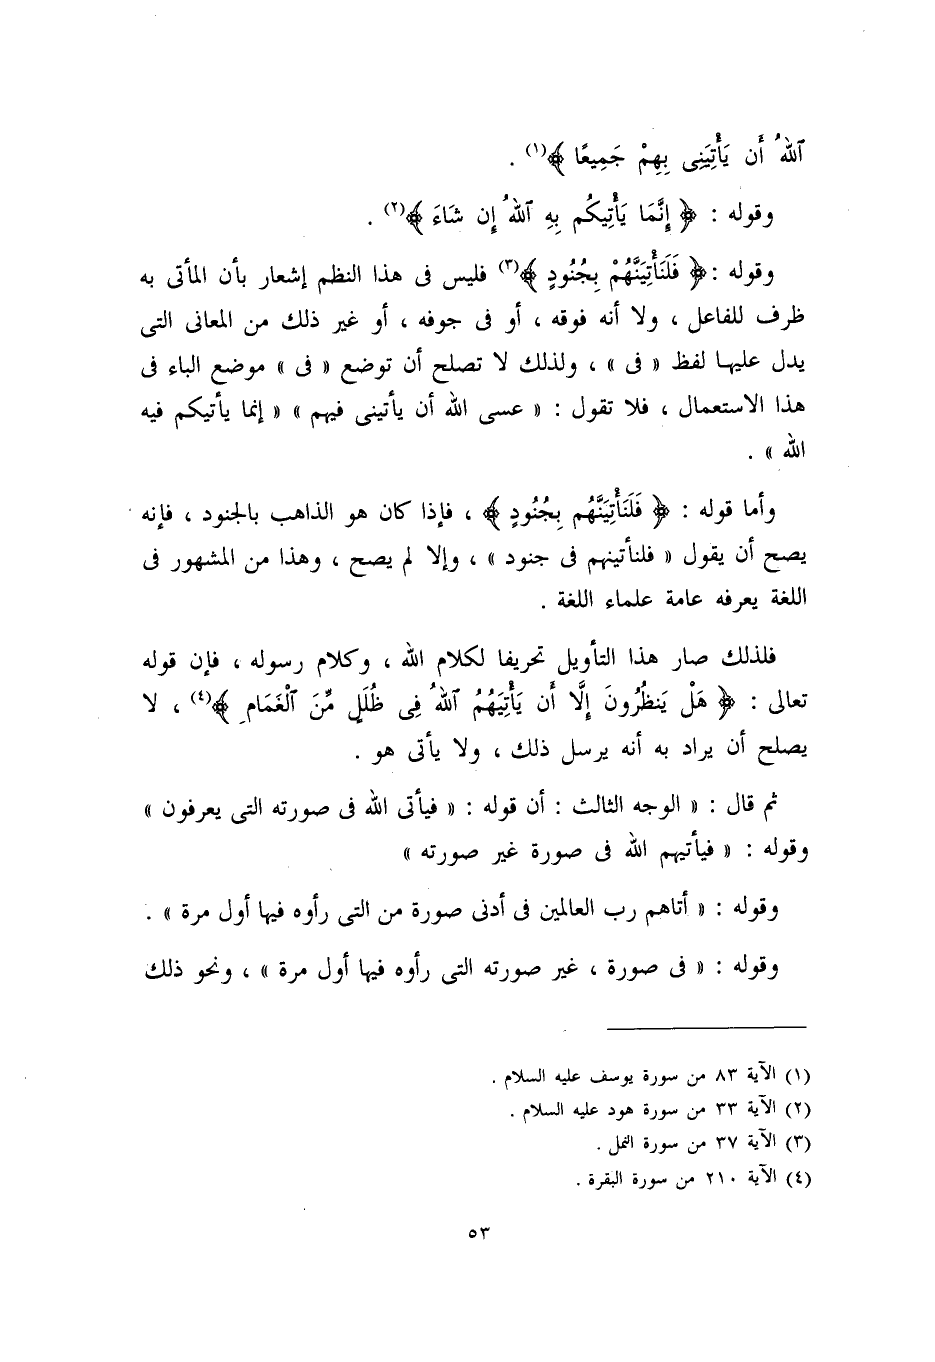 ٱللَّهُ أَن يَأْتِيَنِى بِهِمْ جَمِيعًا ﴾(١) .
وقوله : ﴿ إِنَّمَا يَأْتِيكُم بِهِ ٱللَّهُ إِن شَاءَ ﴾(٢) .
وقوله : ﴿ فَلَنَأْتِيَنَّهُمْ بِجُنُودٍ ﴾(٣) فليس فى هذا النظم إشعار بأن المأتى به
ظرف للفاعل ، ولا أنه فوقه ، أو فى جوفه ، أو غير ذلك من المعانى التى
يدل عليها لفظ « فى » ، ولذلك لا تصلح أن توضع « فى » موضع الباء فى
هذا الاستعمال ، فلا تقول : « عسى الله أن يأتينى فيهم » « إنما يأتيكم فيه
الله » .
وأما قوله : ﴿ فَلَنَأْتِيَنَّهُم بِجُنُودٍ ﴾ ، فإذا كان هو الذاهب بالجنود ، فإنه
يصح أن يقول « فلنأتينهم فى جنود » ، وإلا لم يصح ، وهذا من المشهور فى
اللغة يعرفه عامة علماء اللغة .
فلذلك صار هذا التأويل تحريفا لكلام الله ، وكلام رسوله ، فإن قوله
تعالى : ﴿ هَلْ يَنظُرُونَ إِلَّا أَن يَأْتِيَهُمُ ٱللَّهُ فِى ظُلَلٍ مِّنَ ٱلْغَمَامِ ﴾(٤) ، لا
يصلح أن يراد به أنه يرسل ذلك ، ولا يأتى هو .
ثم قال : « الوجه الثالث : أن قوله : « فيأتى الله فى صورته التى يعرفون »
وقوله : « فيأتيهم الله فى صورة غير صورته »
وقوله : « أتاهم رب العالمين فى أدنى صورة من التى رأوه فيها أول مرة » .
وقوله : « فى صورة ، غير صورته التى رأوه فيها أول مرة » ، ونحو ذلك
(١) الآية ٨٣ من سورة يوسف عليه السلام .
(٢) الآية ٣٣ من سورة هود عليه السلام .
(٣) الآية ٣٧ من سورة النمل .
(٤) الآية ٢١٠ من سورة البقرة .
٥٣